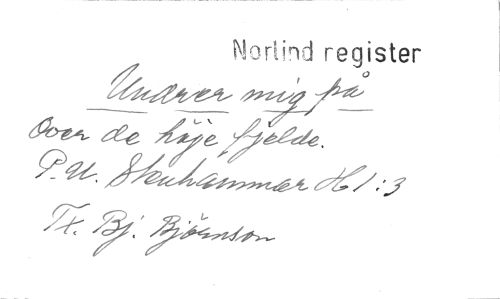 Norlind register
Undrer mig på
over de höje fjelde.
P.U. Stenhammar H 1:3
Tx. Bj. Björnson